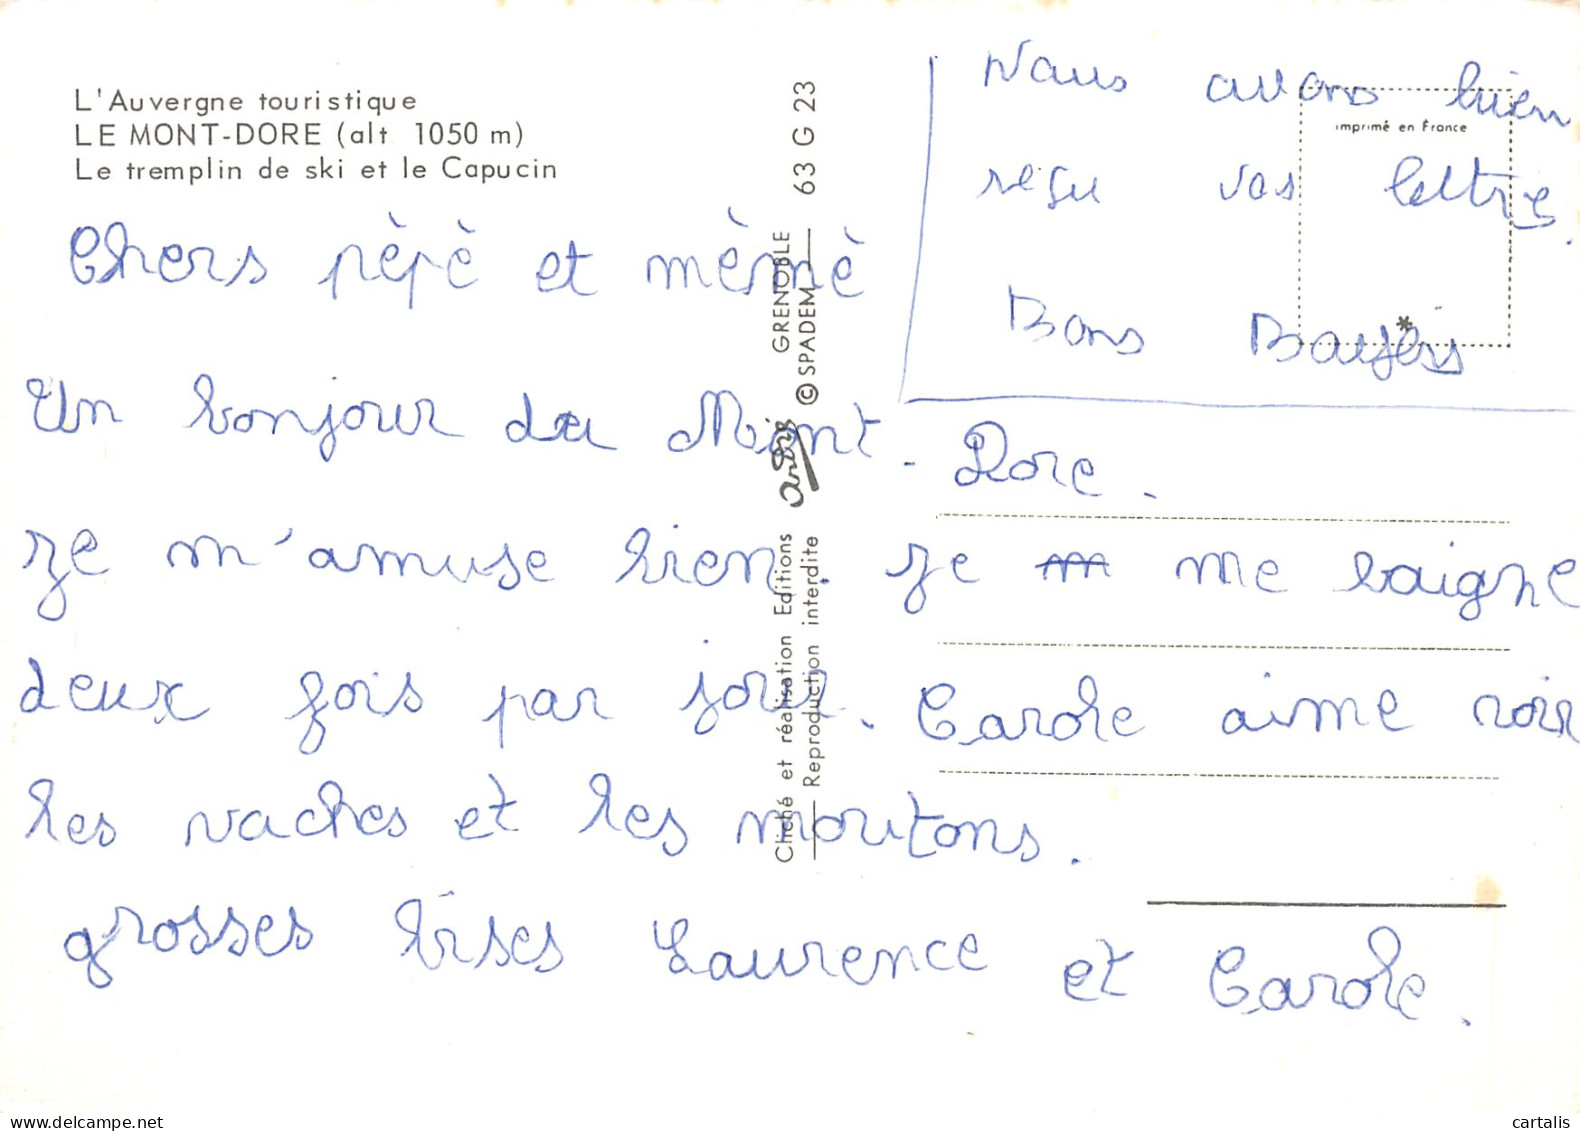 L'Auvergne touristique
LE MONT-DORE (alt 1050 m)
Le tremplin de ski et le Capucin
Nous avons bien
reçu vos lettre.
Bons Baisers
imprimé en France
*
Chers pèpè et mèmè
Un bonjour du Mont-Dore.
Je m'amuse bien. Je m me baigne
deux fois par jour. Carole aime voir
les vaches et les moutons.
grosses bises Laurence et Carole.
Cliché et réalisation Editions André GRENOBLE
Reproduction interdite © SPADEM 63 G 23
cartalis
delcampe.net